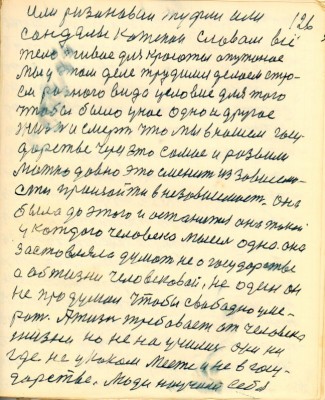 или резиновый туфли или 126
сандалы Кожаной Словам всё
тело живае для Красоты опутаное
Мы у этом деле трудимся делаем стро-
ем разного вида условие для того
чтобы было у нас одно и другое
жизнь и смерть что мы в нашем госу-
дарстве через это самое и развили
Можно давно это сменить из зависимо-
сти произойти в независимост. Она
была до этого и останется она такой
у каждого человека мысел одна. она
заставляла думат не о государстве
а об жизни человековай, не один он
не продумал чтобы свабадно уме-
рат. А жизн требавает от человека
жизни но не научилис они ни
где не у каком Месте и не в госу-
дарстве. Люди научили себя